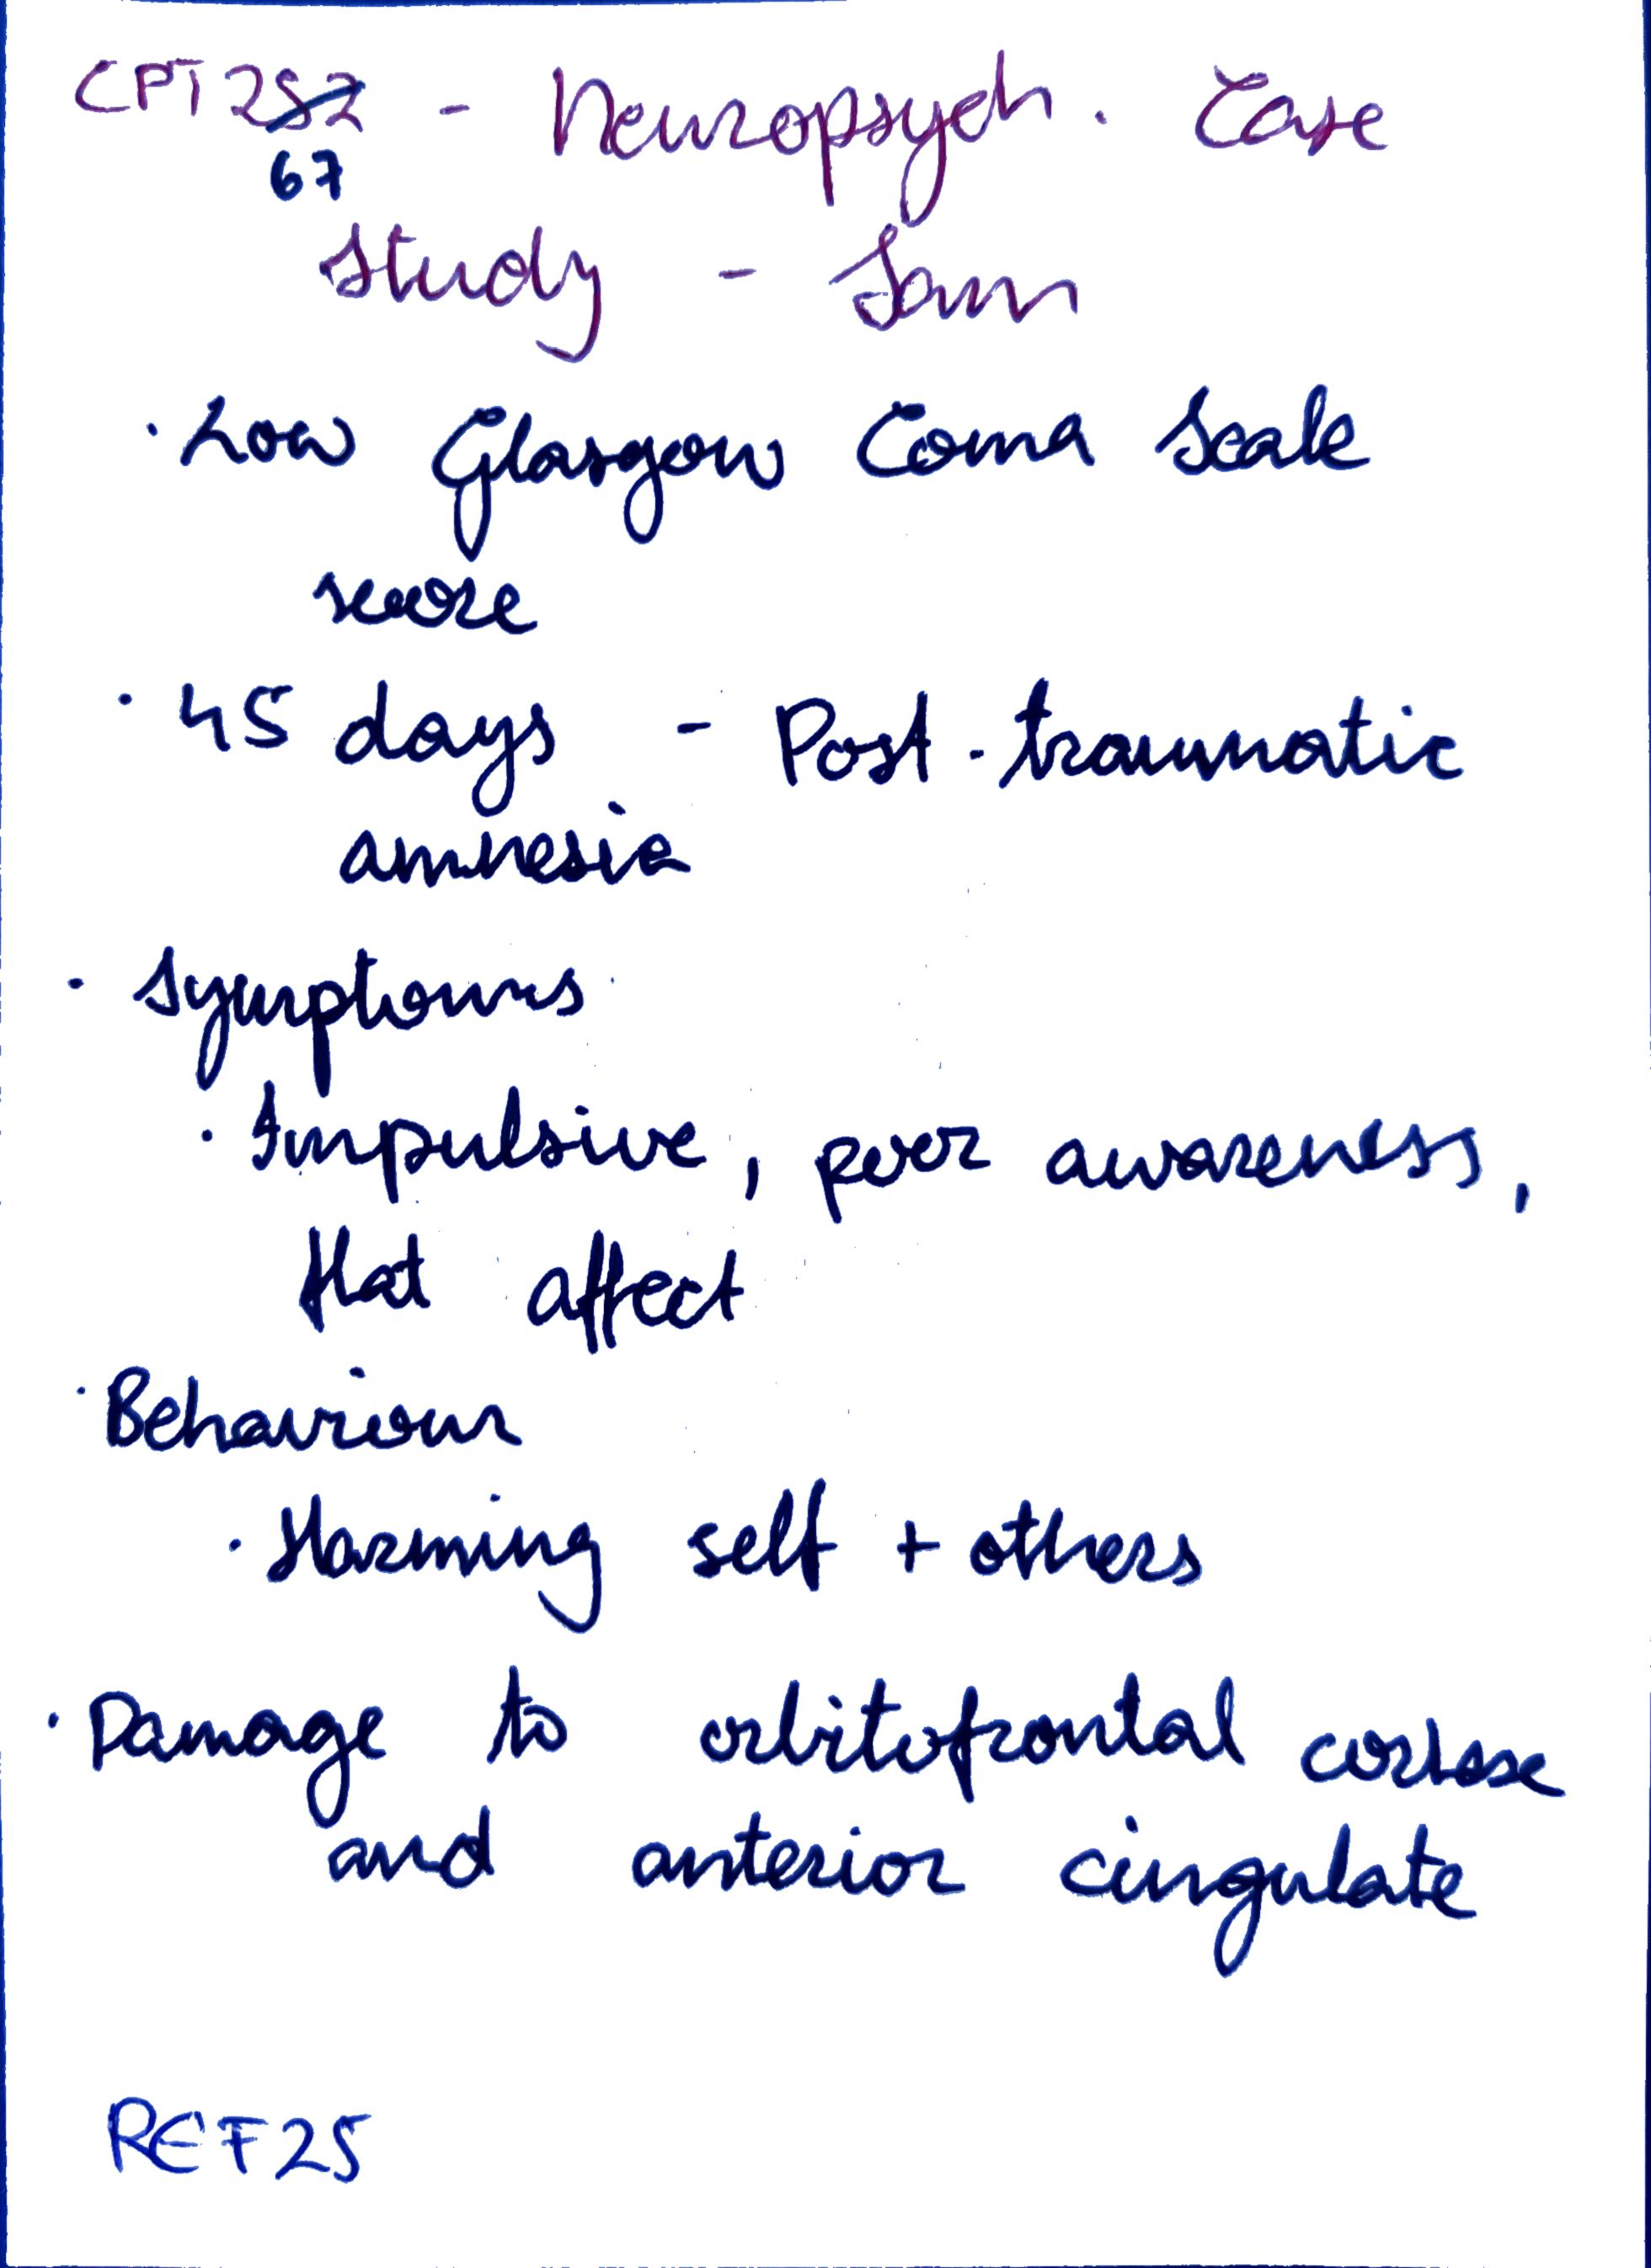 CPT 252 - Neuropsych. Case
67
Study - Sam
· Low Glasgow Coma Scale
score
· 45 days - Post-traumatic
amnesia
· Symptoms
· Impulsive, poor awareness,
flat affect
· Behaviour
· Harming self + others
· Damage to orbitofrontal cortex
and anterior cingulate
REF25